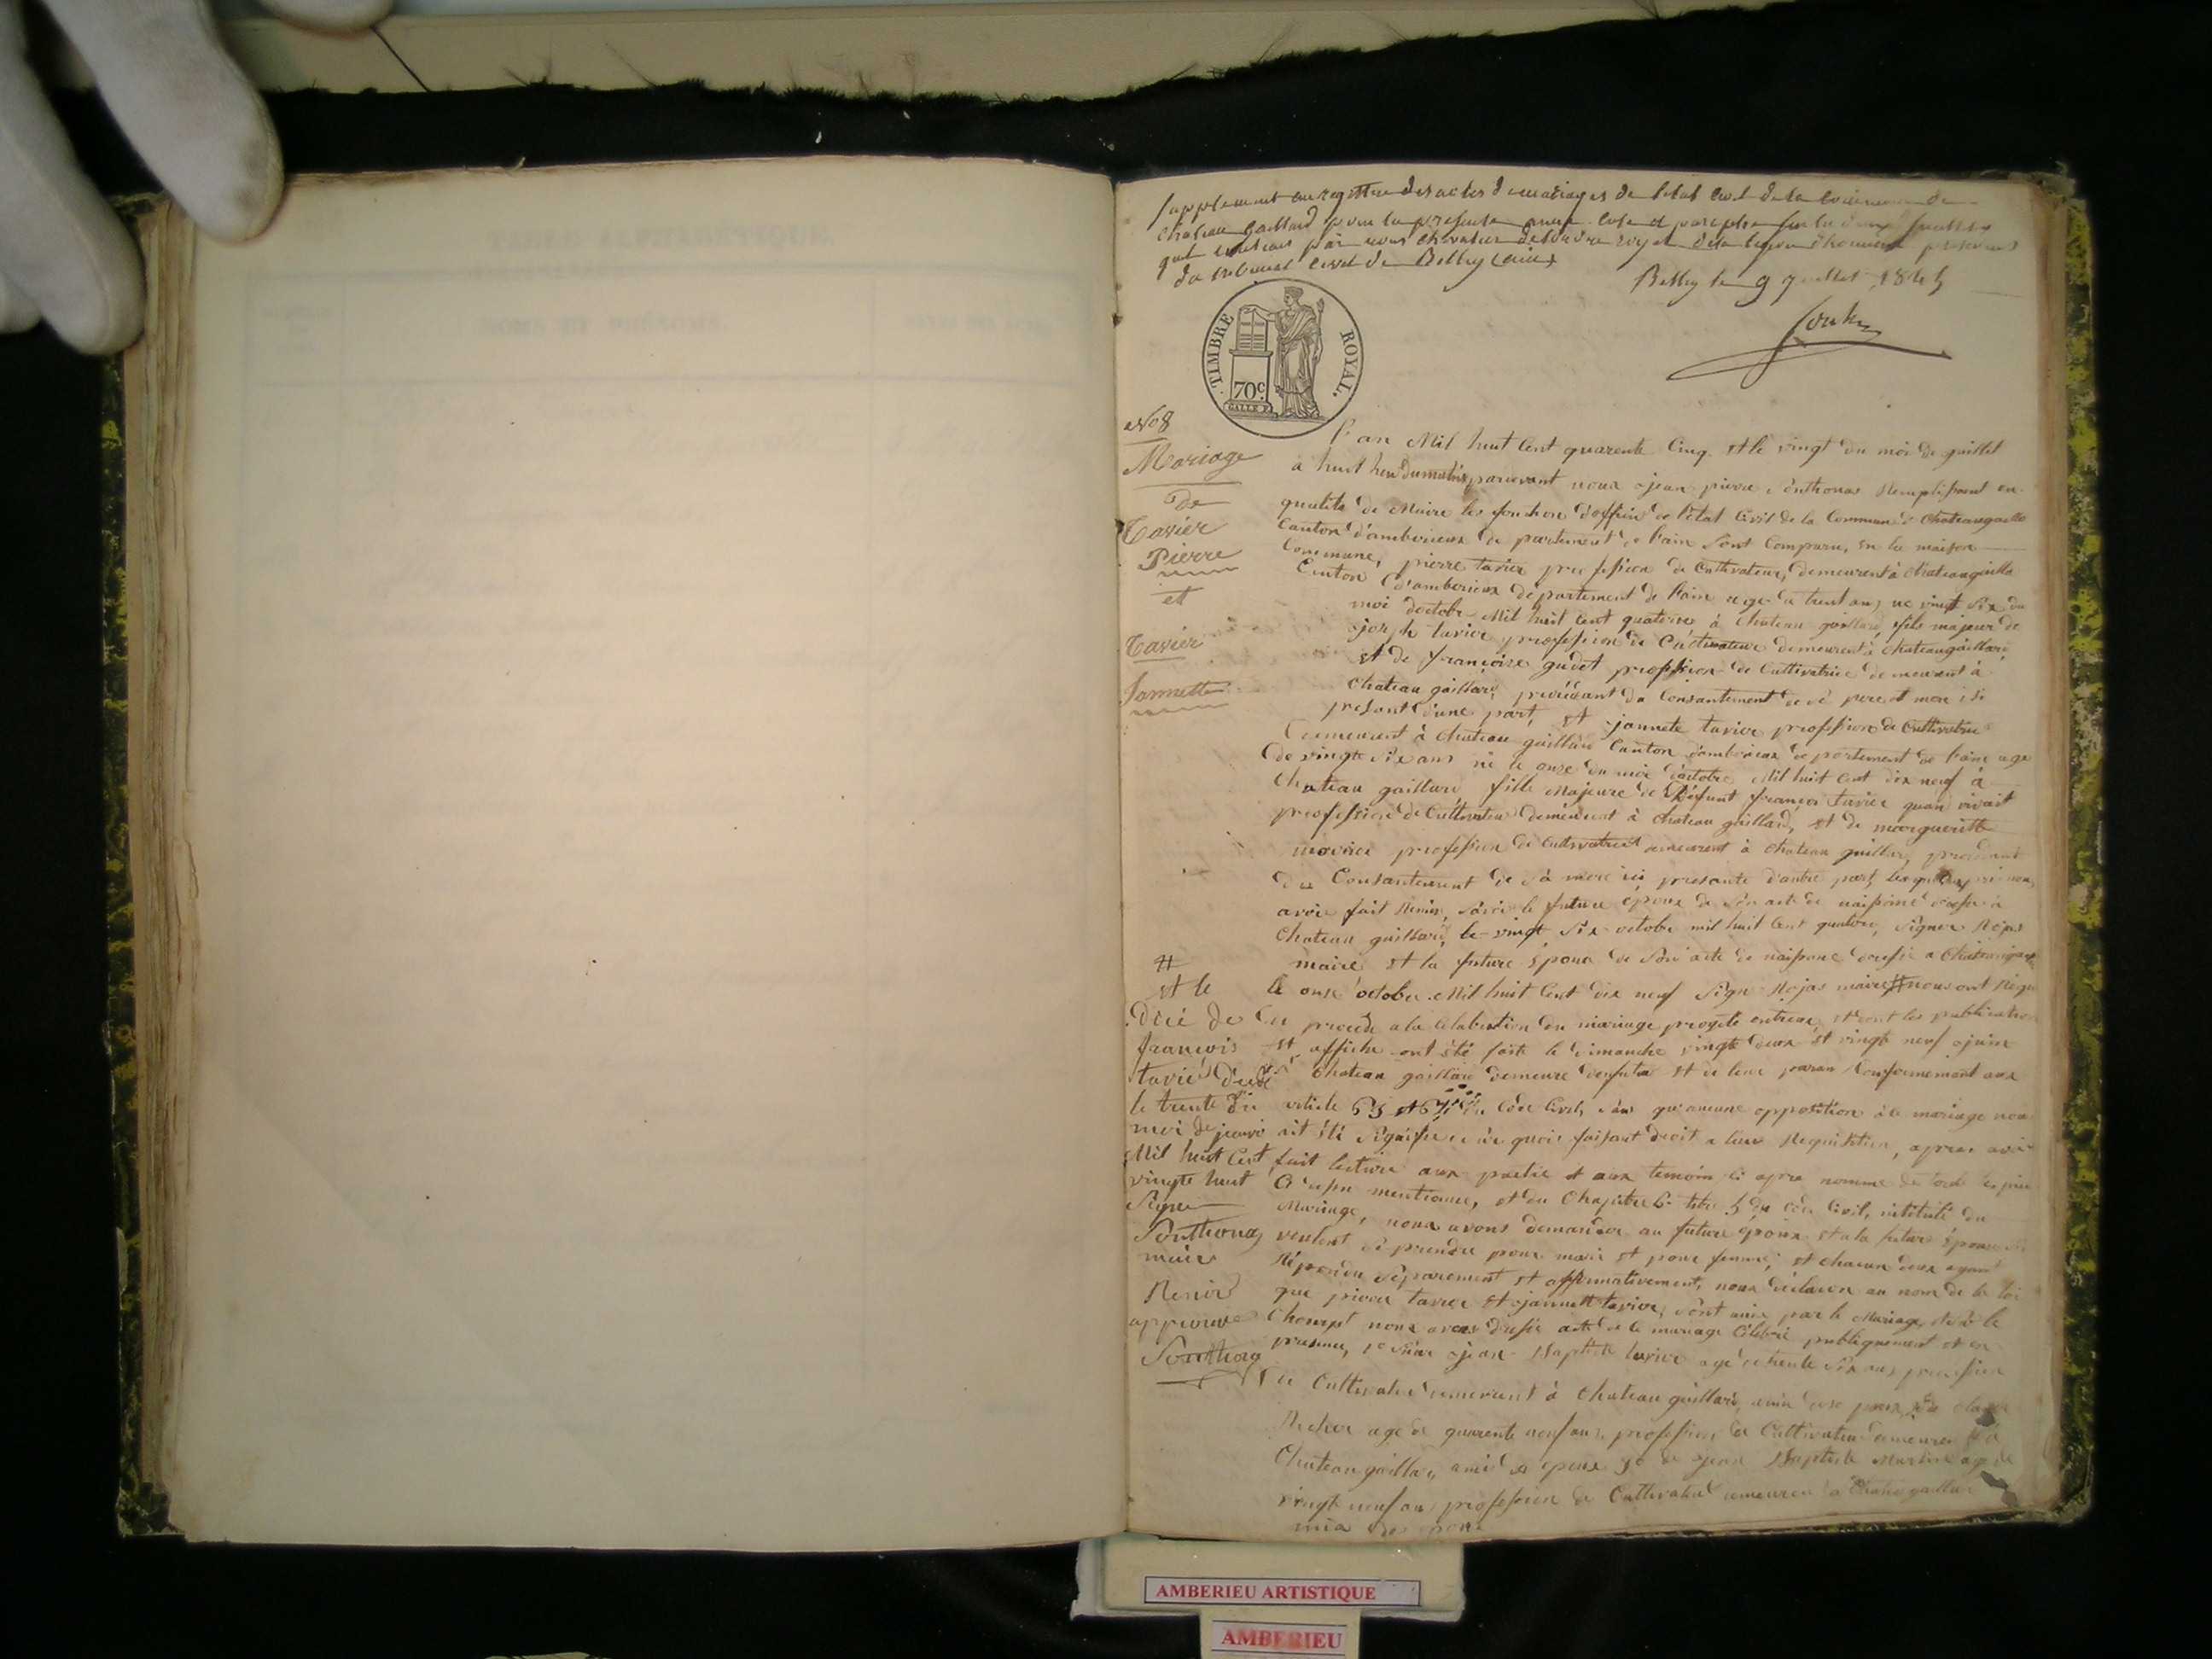 Supplement au registre des actes de mariages de l'etat civil de la commune de
chateau gaillard pour la presente année coté et paraphé sur les deux feuillets
qu'il contient par nous chevalier de l'ordre royal de la legion d'honneur president
du tribunal civil de Belley (ain)
Belley le 9 juillet 1845
TIMBRE ROYAL.
70c.
GALLE F.
No 8
Mariage
de
Tavier
Pierre
et
Tavier
Jannette
L'an Mil huit Cent quarente Cinq et le vingt du moi de juillet
a huit heu du matin, pardevant nous jean pierre Ponthonas Remplissant en
qualité de Maire les fonction d'officié de l'état Civil de la Commune de Chateaugaillar
Canton d'amberieux departement de l'ain Sont Comparu, en la maison
Commune, pierre tavier profession de Cultivateur, demeurent à Chateaugailla
Canton d'amberieux département de l'ain agé de trent ans né vingt six du
moi doctobr Mil huit Cent quatorze à Chateau gaillard, fils majeur de
joseph tavier profession de Cultivateur demeurent à Chateaugaillard,
et de françoise gudet profession de Cultivatrice demeurent à
Chateau gaillard, procédant du Consantement de sé pere et mere ici
présant d'une part, et jannete tavier profession de Cultivatrice
demeurent à Chateau gaillard Canton d'amberieux departement de l'ain age
de vingte six ans né le onze du moi d'octobre Mil huit Cent dix neuf à
Chateau gaillard, fille Majeure de Défunt françois tavier quan vivait
profession de Cultivateur demeurent à Chateau gaillard, et de margueritte
profession de Cultivatrice demeurent à Chateau gaillard, procedant
du Consantement de sa mere ici presante d'autre part,
avoir fait Remis, Savoir le future époux de son acte de naissance dressé à
Chateau gaillard, le vingt six octobre mil huit Cent quatorze, Signer Rojas
maire, et la future Epoux de son acte de naissance dressé a Chateaugail
le onze octobre Mil huit Cent dix neuf Signé Rojas maire # nous ont requi
de procedé a la Celebration du mariage projeté entreux et dont les publication
et affiche ont été faite le dimanche vingte deux et vingte neuf juin
Chateau gaillard demeure et de leur paran Conformement aux
article 63 et du Code Civil, sans qu'aucune opposition à ce mariage nou
ait été Signifiée de quoi faisant droit a leur Requisition, apres avoir
fait lecture aux partie et aux temoin ci apre nommé de tout les piece
mentionné, et du Chapitre 6 titre 5 du Code Civil, intitulé du
Mariage, nous avons demander au future époux et a la future Epouse
veulent se prendre pour mari et pour femme; et chacun deux ayant
Répondu séparement et affirmativement, nous déclaron au nom de la loi
que pierre tavier et jannett tavier, sont unis par le Mariage,
nous avons dressé acte de le mariage Célébré publiquement et en
presence, 1° de jean Baptiste tavier agé de trente six ans profession
de Cultivateur demeurent à Chateau gaillard,
agé de quarente neuf ans profession de Cultivateur demeurent à
Chateau gaillar, ami de epoux 3° de jean Baptiste Martin agé de
vingt neuf an profession de Cultivateur demeurent à Chateau gaillard
#
et le
françois
tavié
le trente du
moi de janvié
Mil huit Cent
vingte huit
Signé
Ponthonas
maire
Renvoi
approuvé
Ponthonas
AMBERIEU ARTISTIQUE
AMBERIEU